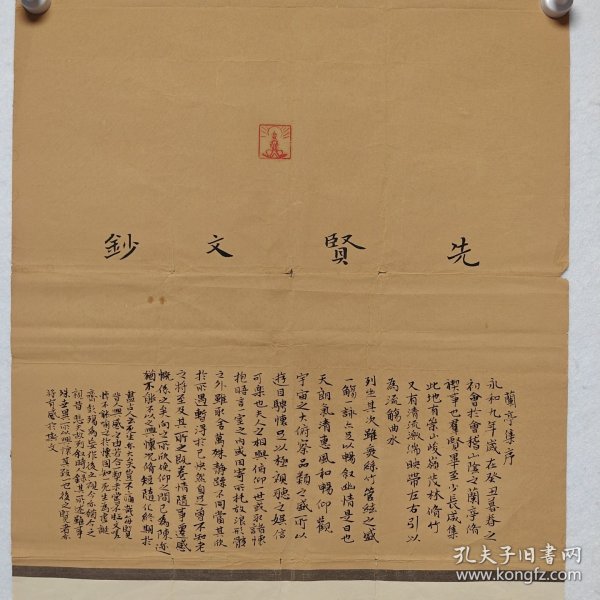 先賢文鈔
蘭亭集序
永和九年歲在癸丑暮春之
初會於會稽山陰之蘭亭脩
禊事也羣賢畢至少長咸集
此地有崇山峻嶺茂林脩竹
又有清流激湍映帶左右引以
為流觴曲水
列坐其次雖無絲竹管絃之盛
一觴一詠亦足以暢叙幽情是日也
天朗氣清惠風和暢仰觀
宇宙之大俯察品類之盛所以
遊目騁懷足以極視聽之娛信
可樂也夫人之相與俯仰一世或取諸懷
抱晤言一室之內或因寄所托放浪形骸
之外雖取舍萬殊靜躁不同當其欣
於所遇暫得於己快然自足曾不知老
之將至及其所之既倦情隨事遷感
慨係之矣向之所欣俛仰之間已為陳迹
猶不能不以之興懷況脩短隨化終期於
盡古人云死生亦大矣豈不痛哉每覽
昔人興感之由若合一契未嘗不臨文嗟
悼不能喻之於懷固知一死生為虛誕
齊彭殤為妄作後之視今亦猶今之
視昔悲夫故列叙時人錄其所述雖事
殊世異所以興懷其致一也後之覽者亦
將有感於斯文
孔夫子旧书网
www.kongfz.com